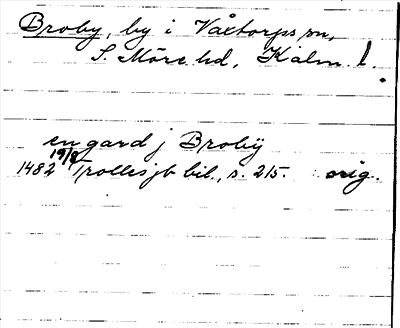 Broby, by i Växtorps sn,
S. Möre hd, Kalm. l.
en gard j Broby
1482 19/8 Trolles jb bil., s. 215. orig.